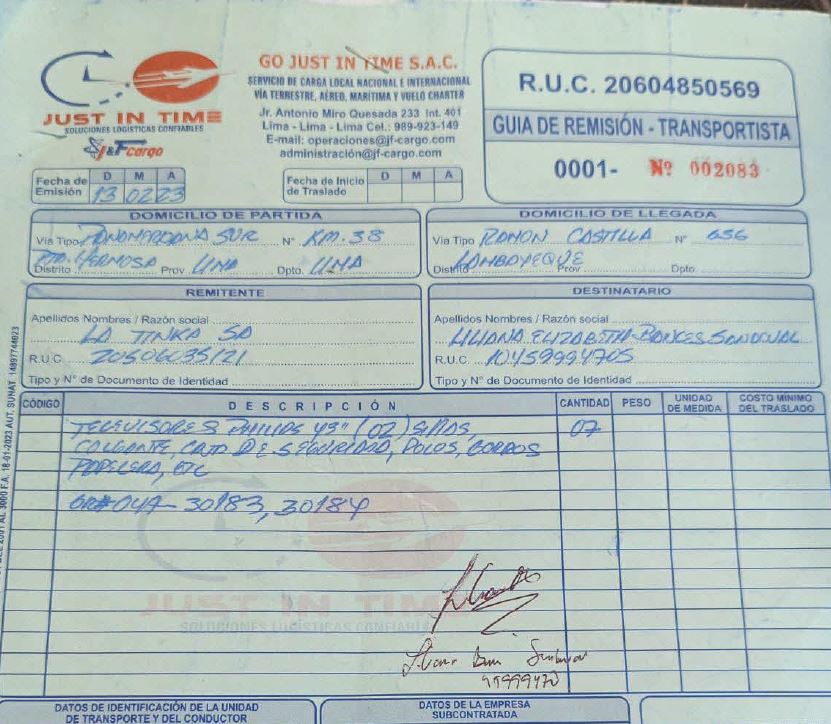 JUST IN TIME
SOLUCIONES LOGÍSTICAS CONFIABLES
J&F cargo
GO JUST IN TIME S.A.C.
SERVICIO DE CARGA LOCAL NACIONAL E INTERNACIONAL
VÍA TERRESTRE, AÉREO, MARÍTIMA Y VUELO CHARTER
Jr. Antonio Miro Quesada 233 Int. 401
Lima - Lima - Lima Cel.: 989-923-149
E-mail: operaciones@jf-cargo.com
administración@jf-cargo.com
R.U.C. 20604850569
GUIA DE REMISIÓN - TRANSPORTISTA
0001- Nº 002083
Fecha de Emisión D M A
13 02 23
Fecha de Inicio de Traslado D M A
DOMICILIO DE PARTIDA
Vía Tipo PANAMERICANA SUR Nº KM. 38
Distrito PTA HERMOSA Prov LIMA Dpto. LIMA
DOMICILIO DE LLEGADA
Vía Tipo RAMON CASTILLA Nº 656
Distrito LAMBAYEQUE Prov Dpto
REMITENTE
Apellidos Nombres / Razón social
LA TINKA SA
R.U.C. 20506035121
Tipo y Nº de Documento de Identidad
DESTINATARIO
Apellidos Nombres / Razón social
LILIANA ELIZABETH BANCES SANDOVAL
R.U.C. 10459994705
Tipo y Nº de Documento de Identidad
CÓDIGO DESCRIPCIÓN CANTIDAD PESO UNIDAD DE MEDIDA COSTO MÍNIMO DEL TRASLADO
TELEVISORES PHILIPS 43" (02) SILLAS, 07
COLGANTE, CAJA DE SEGURIDAD, POLOS, GORROS
PAPELERA, ETC
GR# 047- 30183, 30184
JUST IN TIME
SOLUCIONES LOGÍSTICAS CONFIABLES
DATOS DE IDENTIFICACIÓN DE LA UNIDAD
DE TRANSPORTE Y DEL CONDUCTOR
DATOS DE LA EMPRESA
SUBCONTRATADA